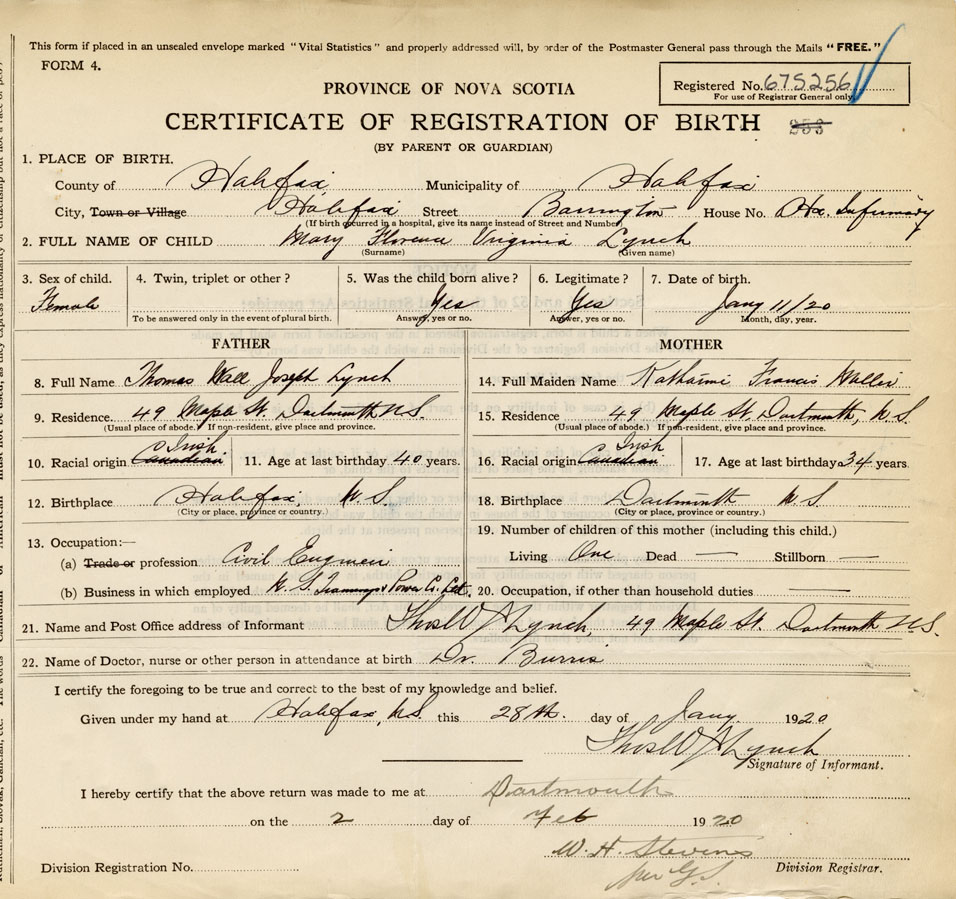 This form if placed in an unsealed envelope marked "Vital Statistics" and properly addressed will, by order of the Postmaster General pass through the Mails "FREE."
FORM 4.
Registered No. 675256
For use of Registrar General only
PROVINCE OF NOVA SCOTIA
CERTIFICATE OF REGISTRATION OF BIRTH
(BY PARENT OR GUARDIAN)
1. PLACE OF BIRTH.
County of Halifax Municipality of Halifax
City, Town or Village Halifax Street Barrington House No. Infirmary
(If birth occurred in a hospital, give its name instead of Street and Number)
2. FULL NAME OF CHILD Mary Florence Virginia Lynch
(Surname) (Given name)
3. Sex of child. 4. Twin, triplet or other? 5. Was the child born alive? 6. Legitimate? 7. Date of birth.
Female Yes Yes Jany 11/20
To be answered only in the event of plural birth. Answer, yes or no. Answer, yes or no. Month, day, year.
FATHER MOTHER
8. Full Name Thomas Wall Joseph Lynch 14. Full Maiden Name Francis
9. Residence. 49 Maple St. Dartmouth N.S. 15. Residence 49 Maple St. Dartmouth, N.S
(Usual place of abode.) If non-resident, give place and province. (Usual place of abode.) If non-resident, give place and province.
Irish Irish
10. Racial origin Canadian 11. Age at last birthday 40 years. 16. Racial origin Canadian 17. Age at last birthday 34 years.
12. Birthplace Halifax, N.S. 18. Birthplace Dartmouth N.S
(City or place, province or country.) (City or place, province or country.)
19. Number of children of this mother (including this child.)
13. Occupation:—
(a) Trade or profession Civil Engineer Living One Dead — Stillborn —
(b) Business in which employed N.S. Tramways & Power Co. Ltd. 20. Occupation, if other than household duties —
21. Name and Post Office address of Informant Thos W J Lynch, 49 Maple St. Dartmouth N.S.
22. Name of Doctor, nurse or other person in attendance at birth Dr. Burris
I certify the foregoing to be true and correct to the best of my knowledge and belief.
Given under my hand at Halifax, N.S. this 28th. day of Jany 1920
Thos W J Lynch
Signature of Informant.
I hereby certify that the above return was made to me at Dartmouth
on the 2 day of Feb 1920
W. H. Stevens
per G.S.
Division Registration No. Division Registrar.